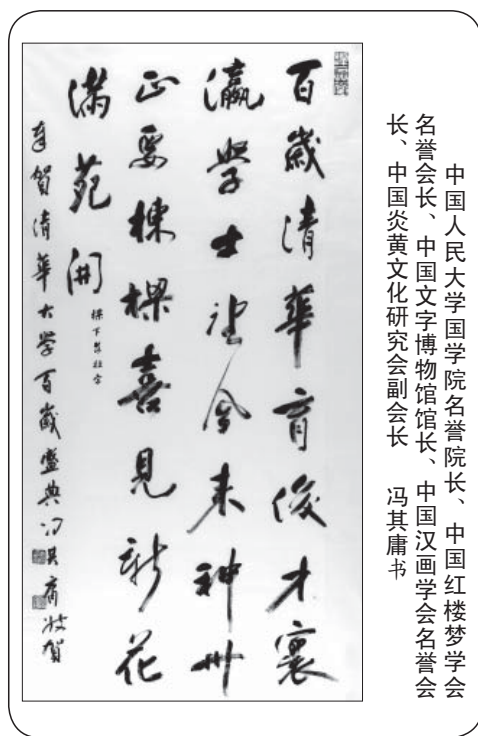 中国人民大学国学院名誉院长、中国红楼梦学会
名誉会长、中国文字博物馆馆长、中国汉画学会名誉会
长、中国炎黄文化研究会副会长 冯其庸书
百歲清華育俊才寰
瀛學士今来神州
正要棟樑喜見新花
滿苑開
樑下柱字
奉賀清華大學百歲盛典馮其庸敬賀